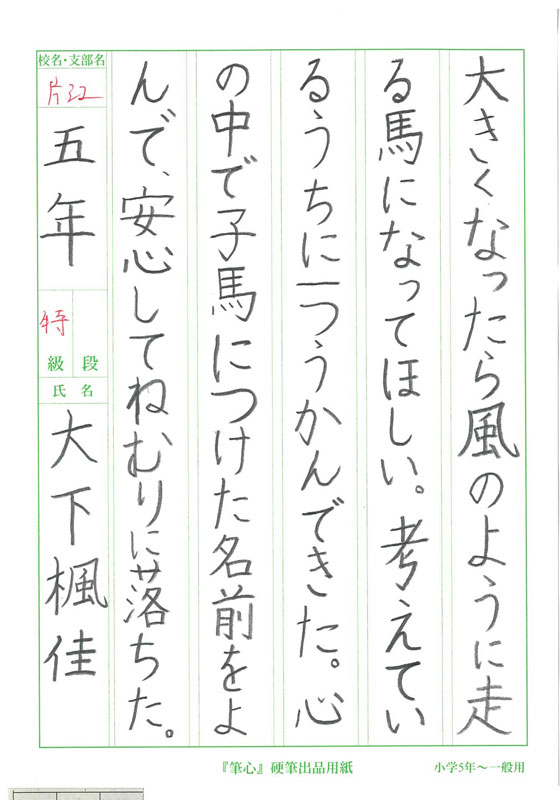 大きくなったら風のように走
る馬になってほしい。考えてい
るうちに一つうかんできた。心
の中で子馬につけた名前をよ
んで、安心してねむりに落ちた。
校名・支部名
五年
特
級 段
氏 名
大下楓佳
『筆心』硬筆出品用紙
小学5年～一般用